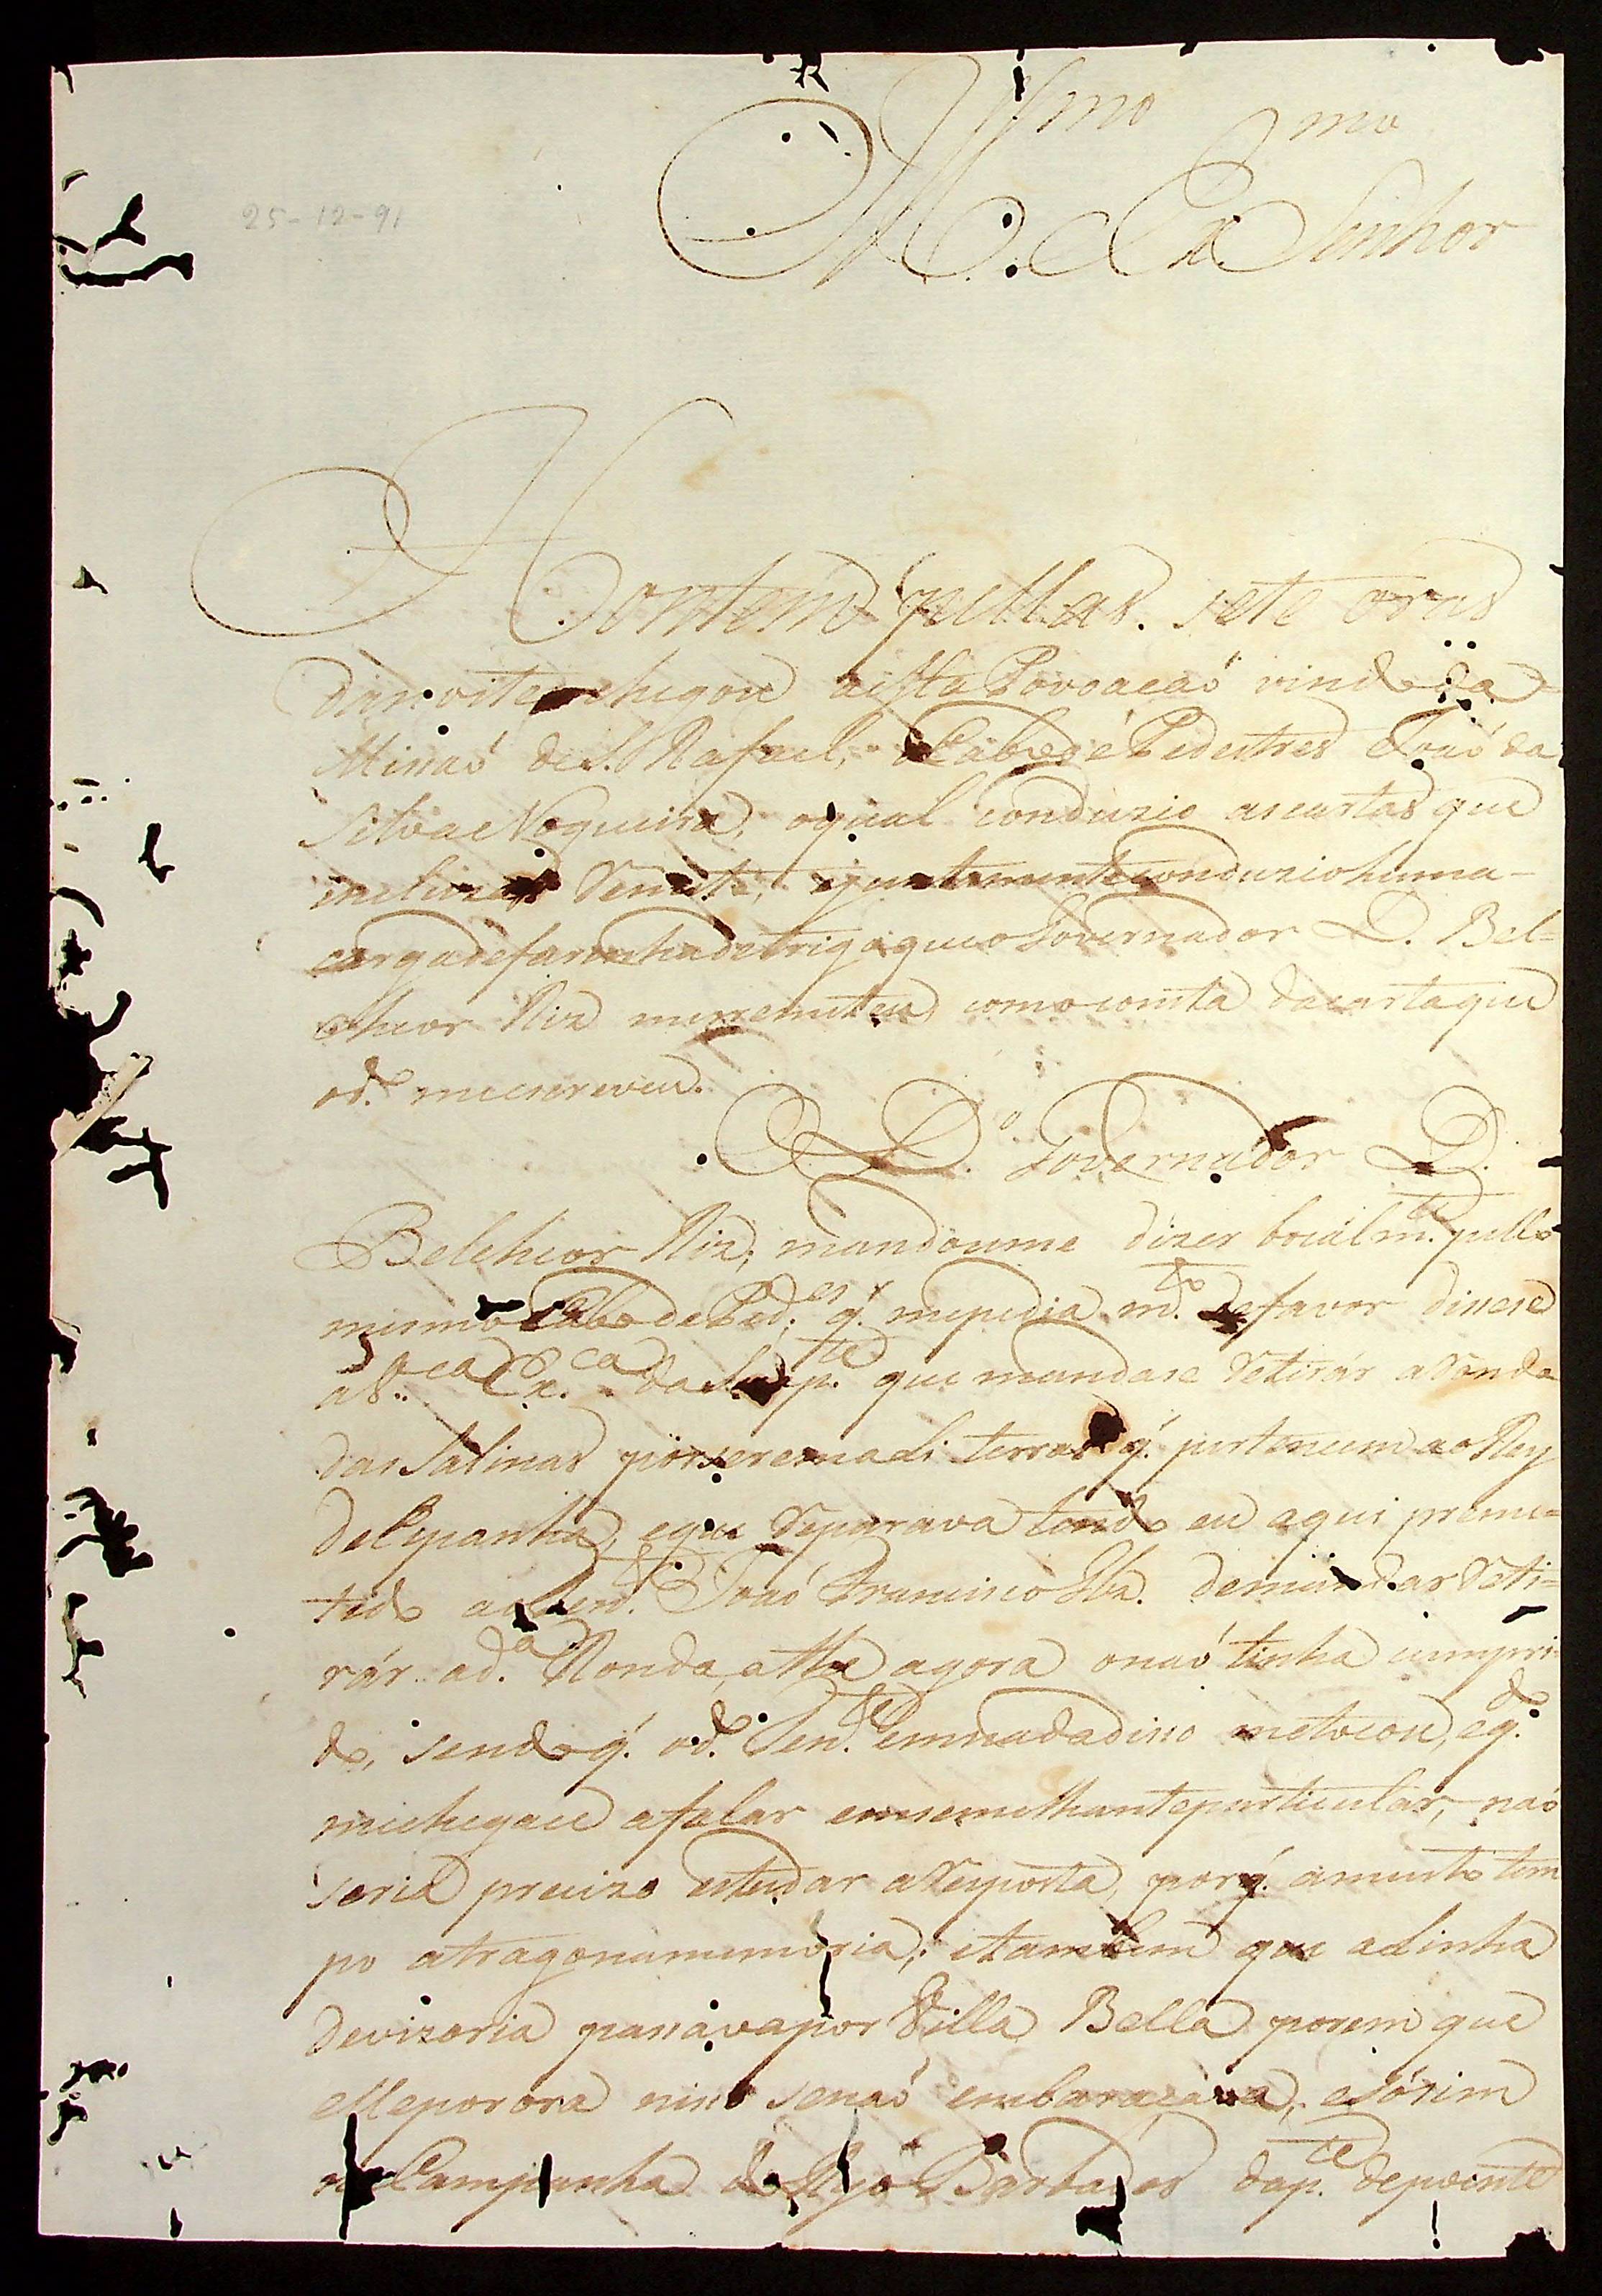 Illmo Exmo
Senhor
25-12-91
Hontem pellas. sete oras
da noite chegou aesta Povoacaó vindo da
Missaó de S. Rafael, o Cabo de Pedestres Joaó da
Silva e Nogueira, o qual conduzio as cartas que
incluzas Remeto, e juntamente conduzio huma
carga de farinha de trigo que o Governador D. Bel=
chior Riz me remeteu como consta da carta que
o d.o me escreveu.
O D.o Governador D.
Belchior Riz, mandoume dizer bocálm.te pello
mesmo Cabo de Ped.es q. me pedia m.to de favor dicese
a V.ca Ex.ca da Sua p.te que mandase Retirár a Ronda
das Salinas por serem ali terras q. pertencem ao Rey
de Espanha, e que Reparava tendo eu aqui preme=
tido ao Ten.te Joaó Francisco de mandar Reti=
rár a d.a Ronda, athe agora o naó tinha cumpri
do, sendo q. o d.o Ten.te em nada diso me tocou, e q.do
me chegace a falar em semelhante particular, naó
seria precizo estudar a Resposta, porq. a muito tem
po a trago na memoria; e tambem que a Linha
devizoria pasáva por Villa Bella porem que
elle por ora niso se naó embaraçáva, e só sim
na Campanha do Ryo Barbados da p.te do poente